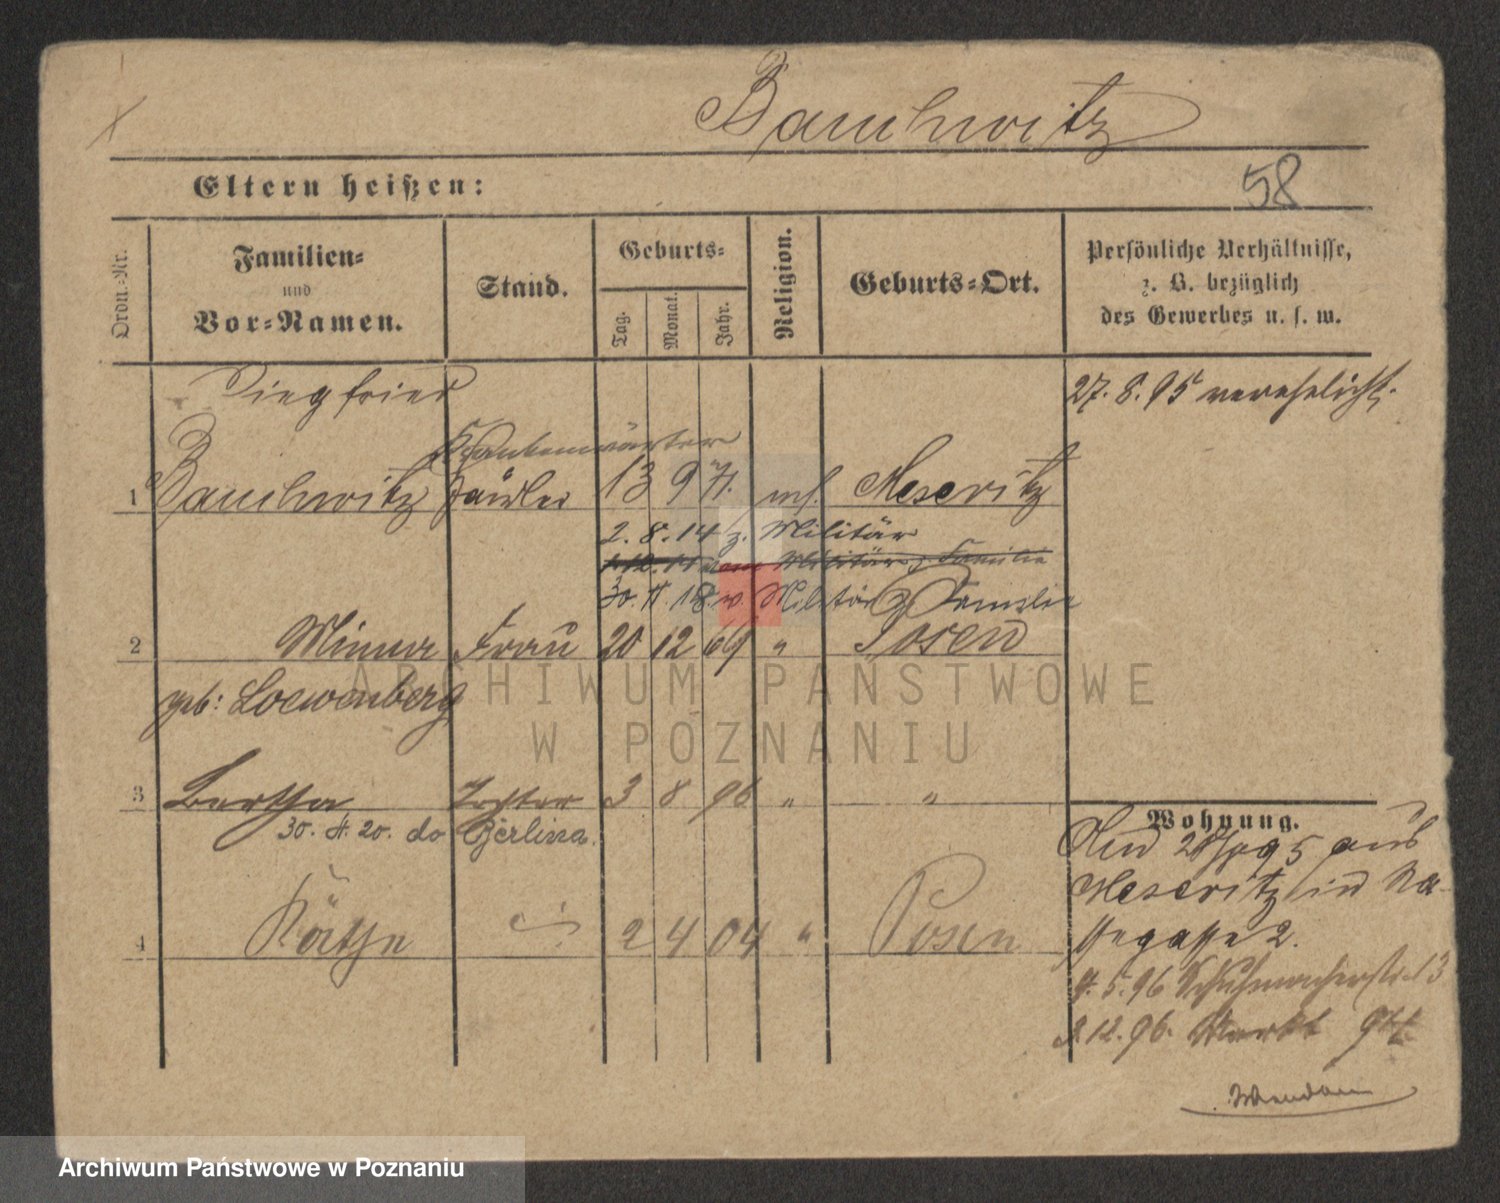 Bauchwitz
Eltern heißen:
58
Ordn.-Nr.
Familien-
und
Vor-Namen.
Stand.
Geburts-
Tag.
Monat.
Jahr.
Religion.
Geburts-Ort.
Persönliche Verhältnisse,
z. B. bezüglich
des Gewerbes u. s. w.
Siegfried
27. 8. 95 verehelicht.
Krankenwärter
1 Bauchwitz 13 9 71. mos. Meseritz
2. 8. 14 z. Militär
Militär z. Familie
30. 11. 18. v. Militär z. Familie
2 Minna Frau 20 12 69 " Posen
geb: Loewenberg
3 Bertha Tochter 3 8 96 " "
30. 4. 20. do Berlina.
4 Käthe 2 4 04 " Posen
Wohnung.
aus
Meseritz in
2.
5. 96 Schuhmacherstr. 13
12. 96. Markt
Wendam
ARCHIWUM PAŃSTWOWE
W POZNANIU
Archiwum Państwowe w Poznaniu